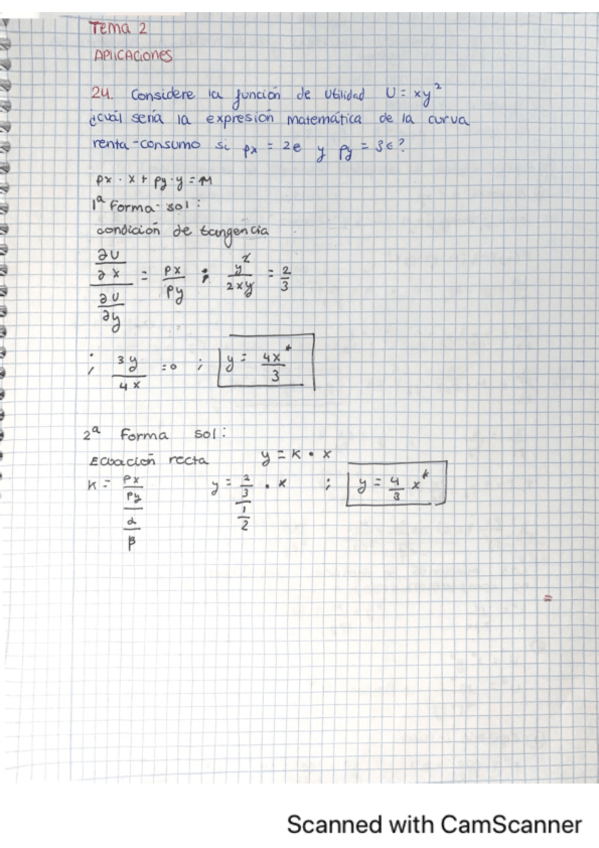 Tema 2
APLICACIONES
24. Considere la función de utilidad U = xy²
¿cuál sería la expresión matemática de la curva
renta-consumo si px = 2€ y py = 3€?
px · x + py · y = M
1ª Forma sol:
condición de tangencia
∂U/∂x / ∂U/∂y = px/py ; y²/2xy = 2/3
; 3y/4x = 0 ; y = 4x*/3
2ª Forma sol:
Ecuación recta y = K · x
K = px/py / α/β y = 2/3 / 1/2 · x ; y = 4/3 x*
=
Scanned with CamScanner